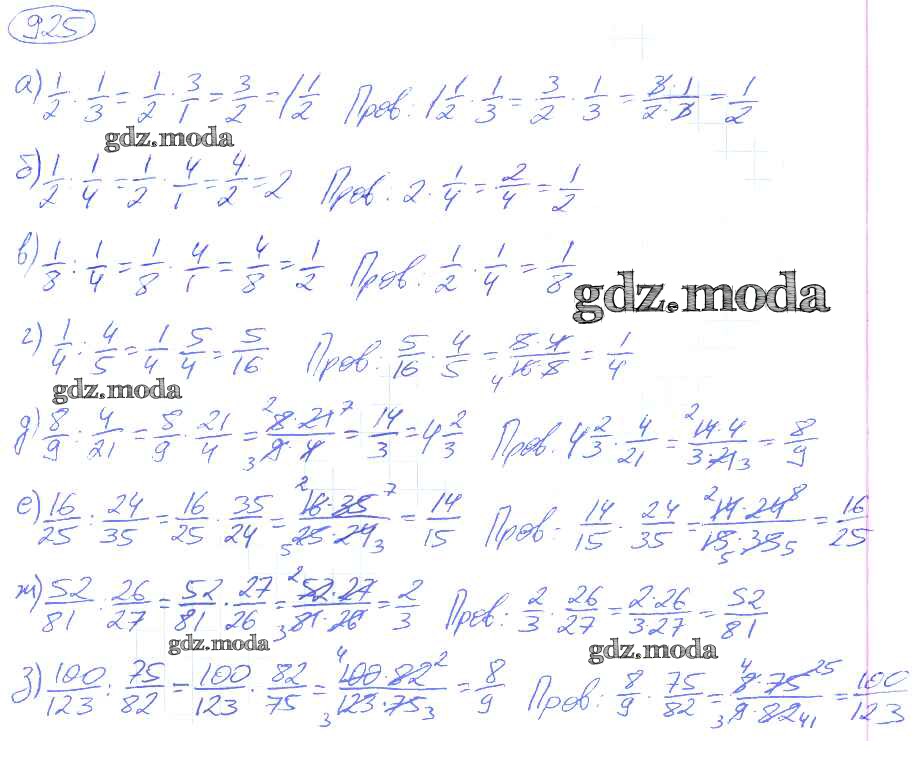 925
а) 1/2 : 1/3 = 1/2 · 3/1 = 3/2 = 1 1/2 Пров: 1 1/2 · 1/3 = 3/2 · 1/3 = 3·1/2·3 = 1/2
gdz.moda
б) 1/2 : 1/4 = 1/2 · 4/1 = 4/2 = 2 Пров. 2 · 1/4 = 2/4 = 1/2
в) 1/8 : 1/4 = 1/8 · 4/1 = 4/8 = 1/2 Пров: 1/2 · 1/4 = 1/8
gdz.moda
г) 1/4 : 4/5 = 1/4 · 5/4 = 5/16 Пров: 5/16 · 4/5 = 5·4/16·5 4 = 1/4
gdz.moda
д) 8/9 : 4/21 = 8/9 · 21/4 = 2 8·21 7/3 9·4 = 14/3 = 4 2/3 Пров. 4 2/3 · 4/21 = 2 14·4/3·21 3 = 8/9
е) 16/25 : 24/35 = 16/25 · 35/24 = 2 16·35 7/5 25·24 3 = 14/15 Пров: 14/15 · 24/35 = 2 14·24 8/15 5·35 5 = 16/25
ж) 52/81 : 26/27 = 52/81 · 27/26 = 2 52·27/3 81·26 = 2/3 Пров: 2/3 · 26/27 = 2·26/3·27 = 52/81
gdz.moda
gdz.moda
з) 100/123 : 75/82 = 100/123 · 82/75 = 4 100·82 2/3 123·75 3 = 8/9 Пров: 8/9 · 75/82 = 4 8·75 25/3 9·82 41 = 100/123